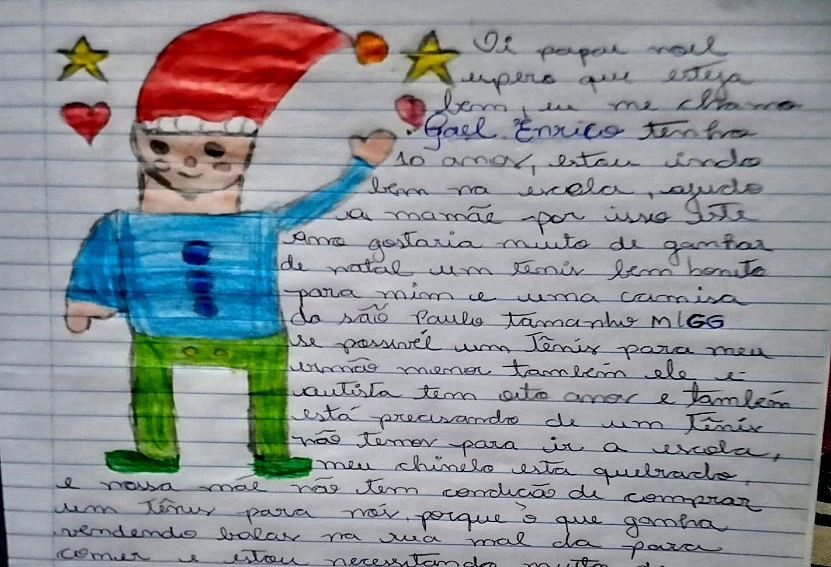 Oi papai noel
espero que esteja
bem, eu me chamo
Gael Enrico tenho
10 anos, estou indo
bem na escola, ajudo
a mamãe por isso Este
Ano gostaria muito de ganhar
de natal um tenis bem bonito
para mim e uma camisa
do são Paulo tamanho M/GG
se possivél um Tênis para meu
irmão menor também ele é
autista tem oito anos e também
está precisando de um Tênis
não temos para ir a escola,
meu chinelo esta quebrado,
e nossa mãe não tem condicão de comprar
um Tênis para nós, porque o que ganha
vendendo balas na rua mal da para
comer e estou necessitando muito de